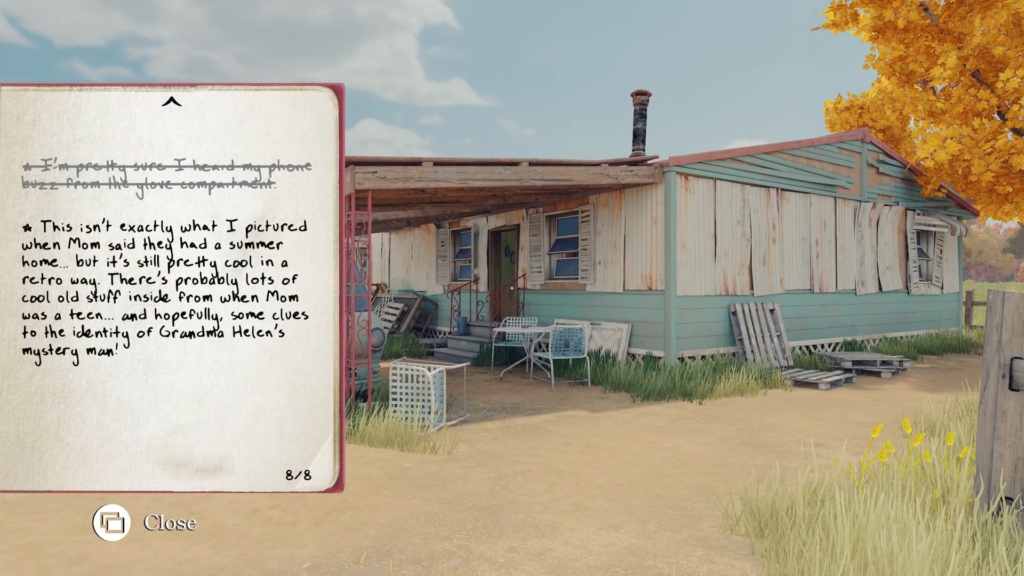 * I'm pretty sure I heard my phone
buzz from the glove compartment.
* This isn't exactly what I pictured
when Mom said they had a summer
home... but it's still pretty cool in a
retro way. There's probably lots of
cool old stuff inside from when Mom
was a teen... and hopefully, some clues
to the identity of Grandma Helen's
mystery man!
8/8
Close